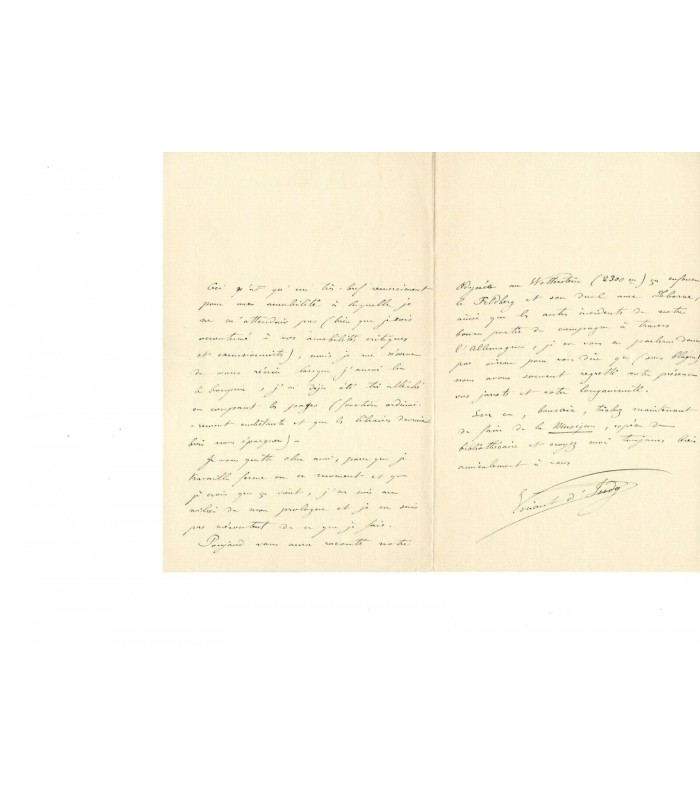 Ceci n'est qu'un très-bref remerciement
pour une amabilité à laquelle je
ne m'attendais pas (bien que je sois
accoutumé à vos amabilités critiques
et), mais je me réserve
de vous lorsque j'aurai lu
le, j'ai déjà été très alléché
en coupant les pages (fonction ordinai-
-rement embêtante et que les libraires devraient
bien nous épargner) —
Je vous quitte cher ami, parce que je
travaille ferme en ce moment et que
je crois que ça vient, j'en suis au
milieu de mon prologue et je ne suis
pas mécontent de ce que je fais.
Poujaud vous aura raconté notre
au (2300 m) ça enfonce
le Feldberg et son duel avec,
ainsi que les autres incidents de notre
bonne partie de campagne à travers
l'Allemagne, je ne vous en parlerai donc
pas sinon pour vous dire que (sans blague)
nous avons souvent regretté votre présence
vos jarrets et votre longanimité.
Sur ce, bonsoir, tâchez maintenant
de faire de la Musique, espèce de
bibliothécaire et croyez moi toujours bien
amicalement à vous
Vincent d'Indy